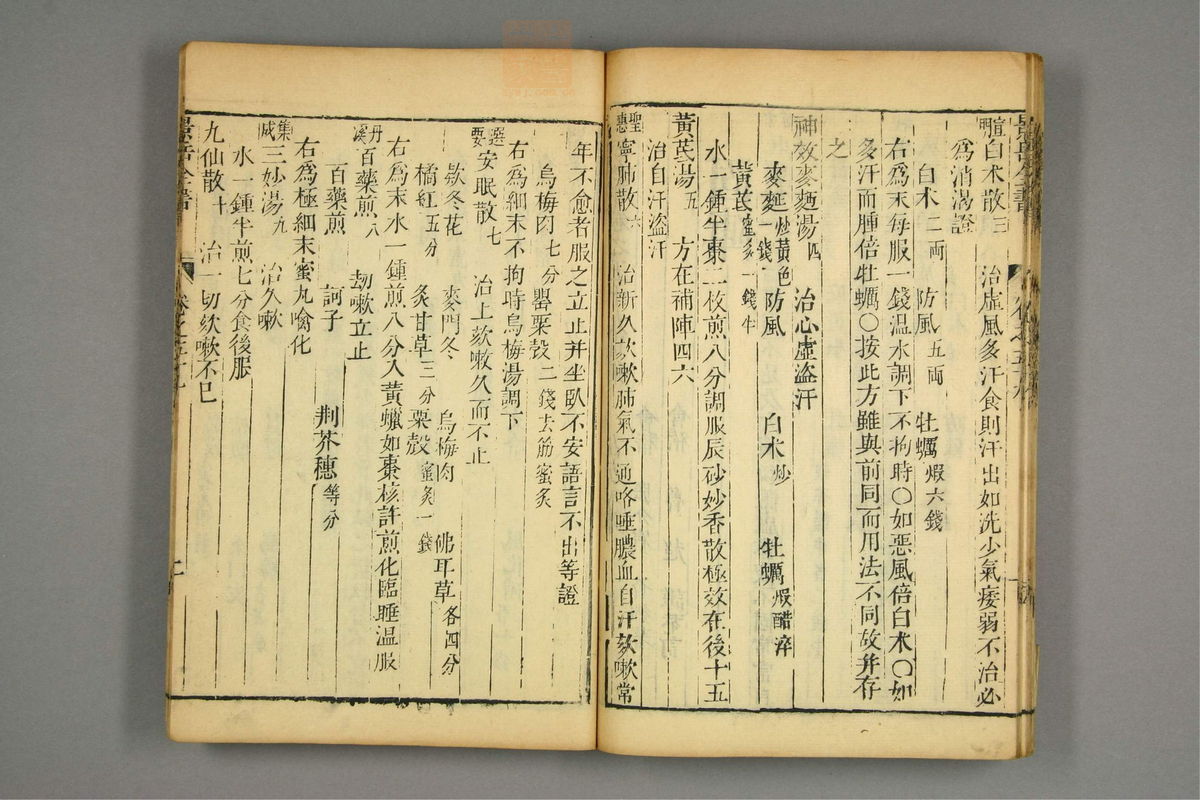 宣明白朮散三　治虛風多汗食則汗出如洗少氣痿弱不治必
爲消渴證
白朮二兩　防風五兩　牡蠣煆六錢
右爲末每服一錢溫水調下不拘時〇如惡風倍白朮〇如
多汗面腫倍牡蠣〇按此方雖與前同而用法不同故并存
之
神效麥麵湯四　治心虛盜汗
麥麵炒黃色一錢　防風　白朮炒　牡蠣煆醋淬
黃芪蜜炙一錢半
水一鍾半棗二枚煎八分調服辰砂妙香散極效在後十五
黃芪湯五　方在補陣四六
治自汗盜汗
聖惠寧肺散六　治新久欬嗽肺氣不通咯唾膿血自汗欬嗽常
年不愈者服之立止并坐臥不安語言不出等證
烏梅肉七分　罌粟殼二錢去筋蜜炙
右爲細末不拘時烏梅湯調下
選要安眠散七　治上欬嗽久而不止
欵冬花　麥門冬　烏梅肉　佛耳草各四分
橘紅五分　炙甘草三分　粟殼蜜炙一錢
右爲末水一鍾煎八分入黃蠟如棗核許煎化臨睡溫服
丹溪百藥煎八　劫嗽立止
百藥煎　訶子　荆芥穗等分
右爲極細末蜜丸噙化
集成三妙湯九　治久嗽
水一鍾半煎七分食後服
九仙散十　治一切欬嗽不已
景岳全書　卷之五十七